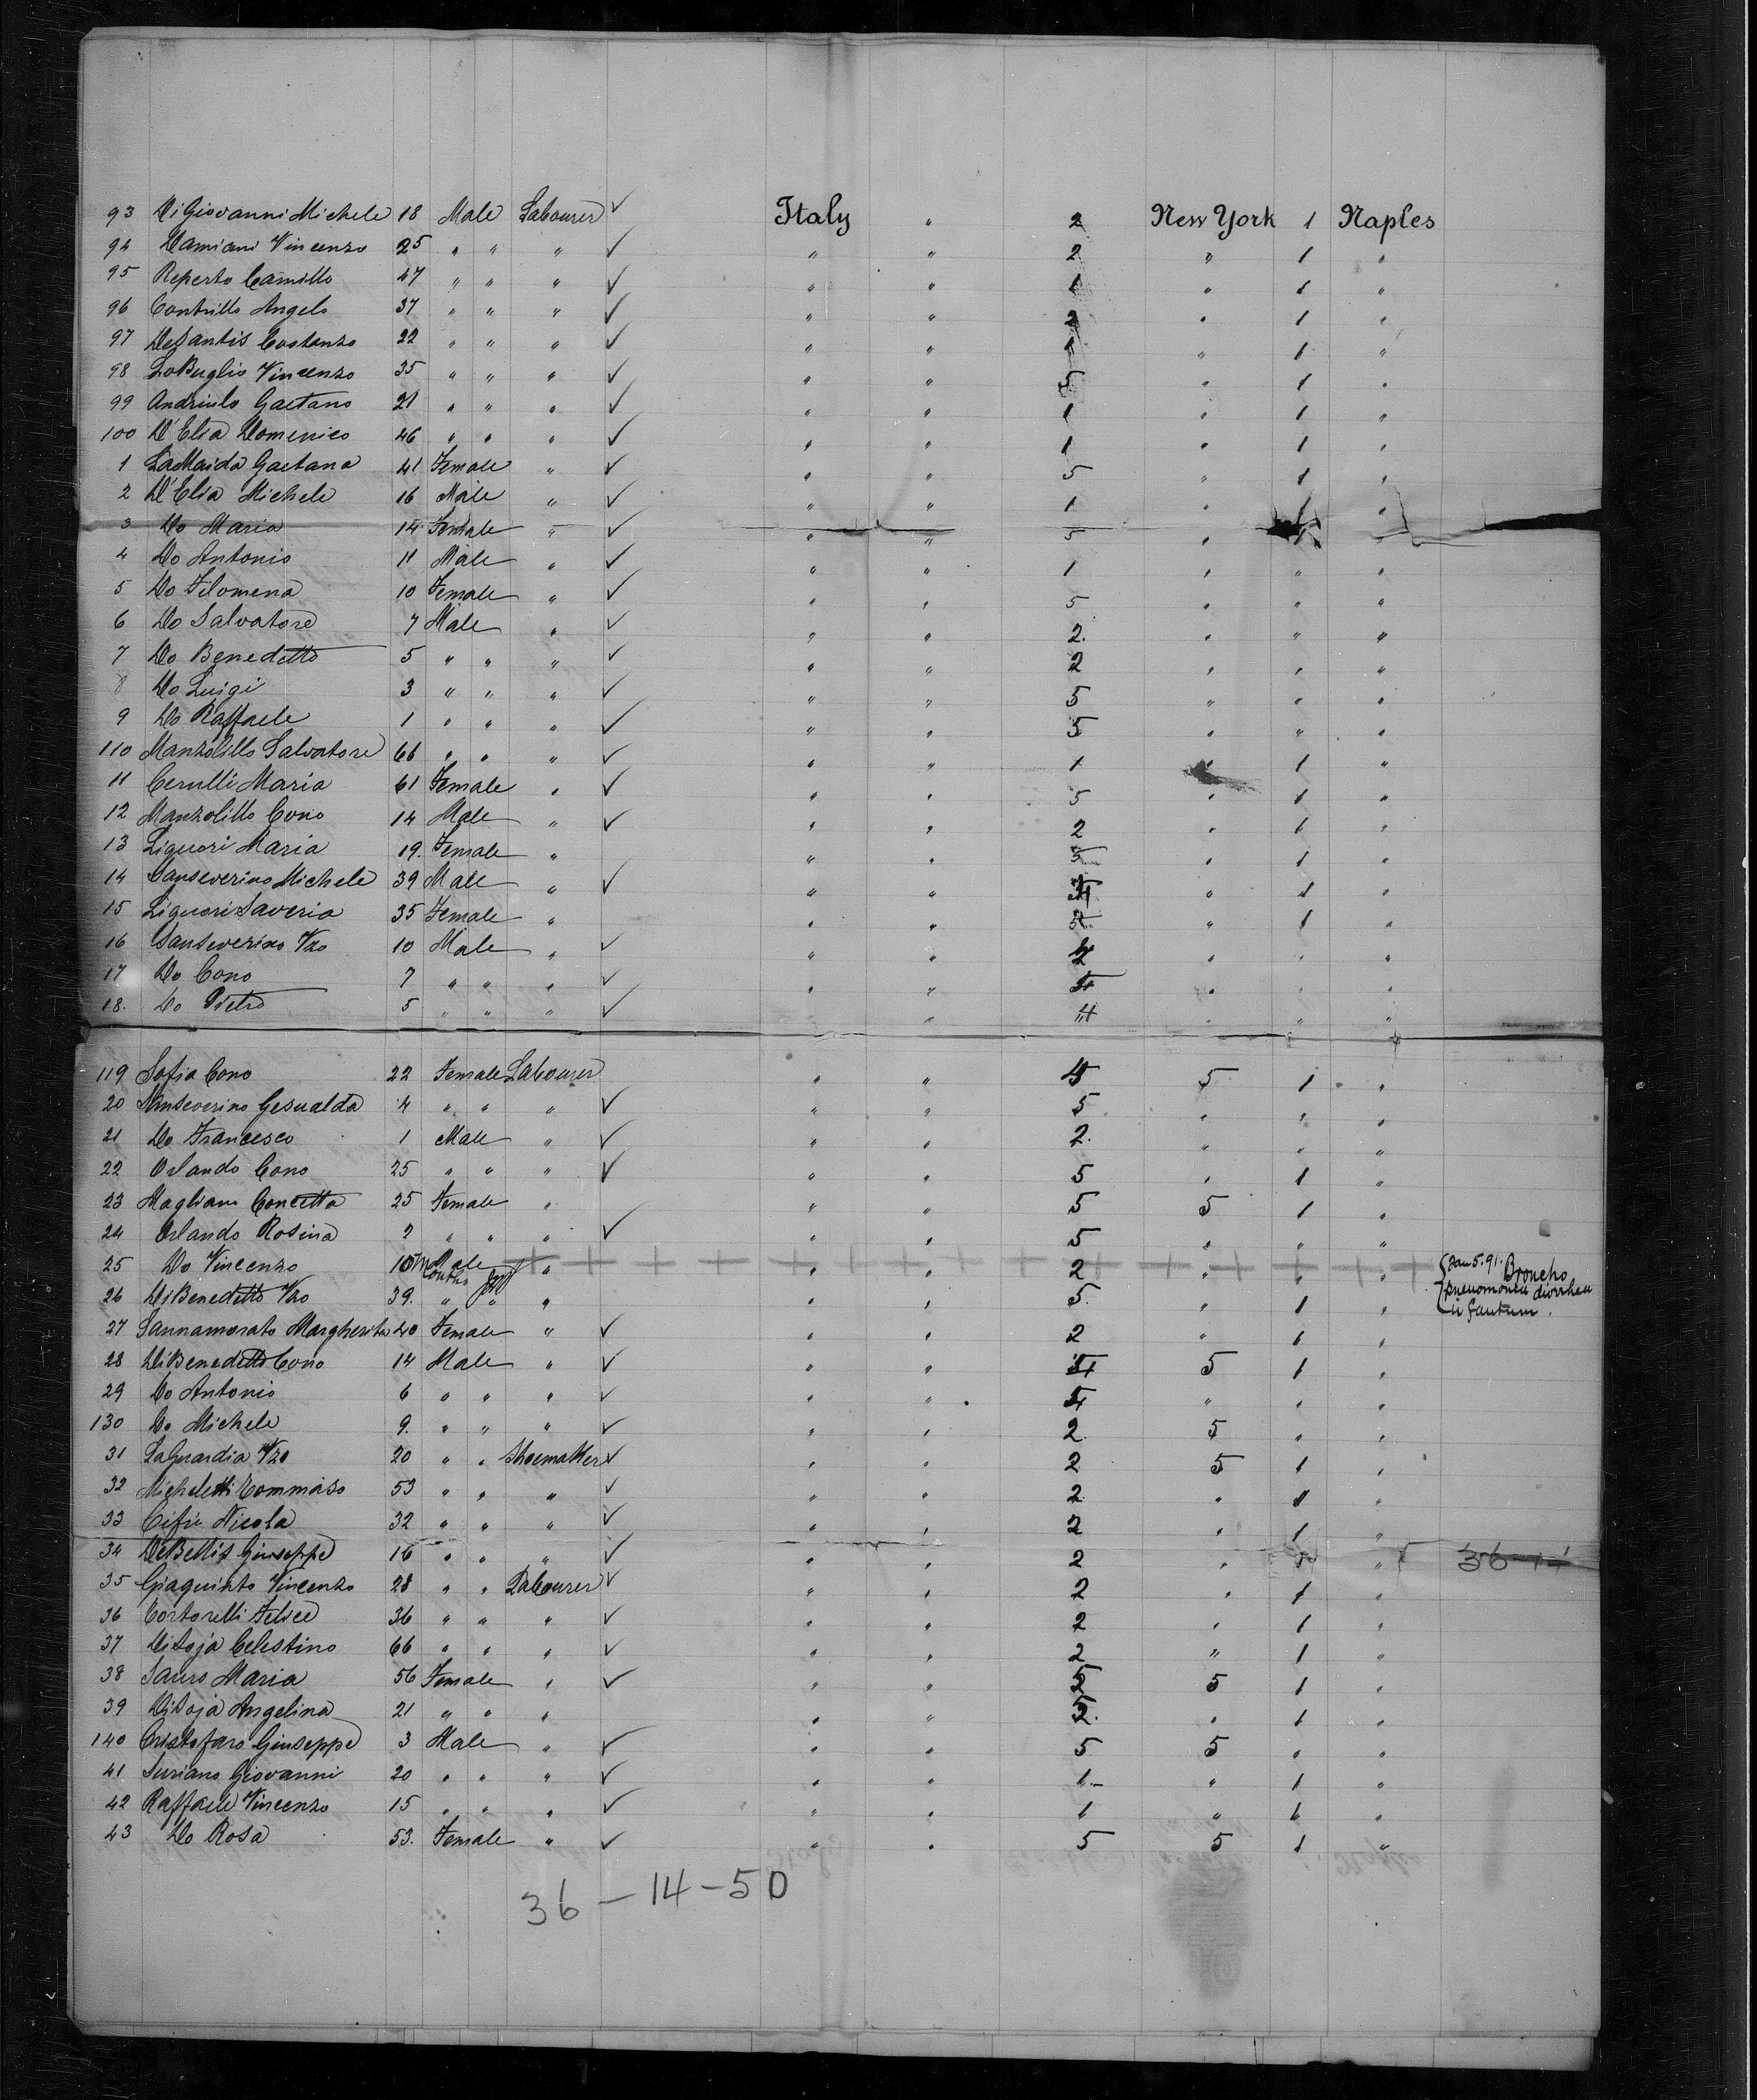 93 Di Giovanni Michele 18 Male Labourer ✓ Italy " 2 New York 1 Naples
94 Damiani Vincenzo 25 " " " ✓ " " 2 " 1 "
95 Reperto Camillo 47 " " " ✓ " " 1 " 1 "
96 Contrillo Angelo 37 " " " ✓ " " 2 " 1 "
97 DeSantis Costanzo 22 " " " ✓ " " 1 " 1 "
98 LoBuglio Vincenzo 35 " " " ✓ " " 5 " 1 "
99 Andriulo Gaetano 21 " " " ✓ " " 1 " 1 "
100 D'Elia Domenico 46 " " " ✓ " " 1 " 1 "
1 LaMaida Gaetana 41 Female " ✓ " " 5 " 1 "
2 D'Elia Michele 16 Male " ✓ " " 1 " 1 "
3 Do Maria 14 Female " ✓ " " 5 " 1 "
4 Do Antonio 11 Male " ✓ " " 1 " " "
5 Do Filomena 10 Female " ✓ " " 5 " " "
6 Do Salvatore 7 Male " ✓ " " 2. " " "
7 Do Benedetto 5 " " " ✓ " " 2 " " "
8 Do Luigi 3 " " " ✓ " " 5 " " "
9 Do Raffaele 1 " " " ✓ " " 5 " " "
110 Manzolillo Salvatore 66 " " " ✓ " " 1 " 1 "
11 Cerulli Maria 61 Female " ✓ " " 5 " 1 "
12 Manzolillo Cono 14 Male " ✓ " " 2 " 1 "
13 Liguori Maria 19. Female " " " 5 " 1 "
14 Sanseverino Michele 39 Male " ✓ " " 4 " 1 "
15 Liguori Saveria 35 Female " " " 5 " 1 "
16 Sanseverino Vzo 10 Male " ✓ " " 2 " " "
17 Do Cono 7 " " " ✓ " " 4 " " "
18. Do Pietro 5 " " " ✓ " 4 " " "
119 Sofia Cono 22 Female Labourer " " 5 5 1 "
20 Sanseverino Gesualda 4 " " " ✓ " " 5 " " "
21 Do Francesco 1 Male " ✓ " " 2. " " "
22 Orlando Cono 25 " " " ✓ " " 5 " 1 "
23 Magliano Concetta 25 Female " " " 5 5 1 "
24 Orlando Rosina 2 " " " ✓ " " 5 " " "
25 Do Vincenzo 10 Months Male " + + + + + " " 2 " " " {Jan 5. 91. Broncho
26 DiBenedetto Vzo 39. " " " " " 5. " 1 " pneumonia diorrhea
infantum.
27 Sannamorato Margherita 40 Female " ✓ " " 2 " 1 "
28 DiBenedetto Cono 14 Male " ✓ " " 4 5 1 "
29 Do Antonio 6 " " " ✓ " " 4 " " "
130 Do Michele 9. " " " ✓ " " 2. 5 " "
31 LaGuardia Vzo 20 " " Shoemaker ✓ " " 2 5 1 "
32 Micheletti Tommaso 53 " " " ✓ " " 2. " 1 "
33 Cifie Nicola 32 " " " ✓ " " 2 " 1 "
34 DeBellis Giuseppe 16 " " " ✓ " " 2 " " 36-14
35 Giaquinto Vincenzo 28 " " Labourer ✓ " " 2 " 1 "
36 Tortorelli Felice 36 " " " ✓ " " 2 " 1 "
37 DiSoja Celestino 66 " " " ✓ " " 2 " 1 "
38 Sauro Maria 56 Female " ✓ " " 5 5 1 "
39 DiSoja Angelina 21 " " " " " 2. " 1 "
140 Cristofaro Giuseppe 3 Male " ✓ " " 5 5 " "
41 Suriano Giovanni 20 " " " ✓ " " 1 " 1 "
42 Raffaele Vincenzo 15 " " " ✓ " " 1 " 1 "
43 Do Rosa 53. Female " ✓ " " 5 5 1 "
36 - 14 - 50